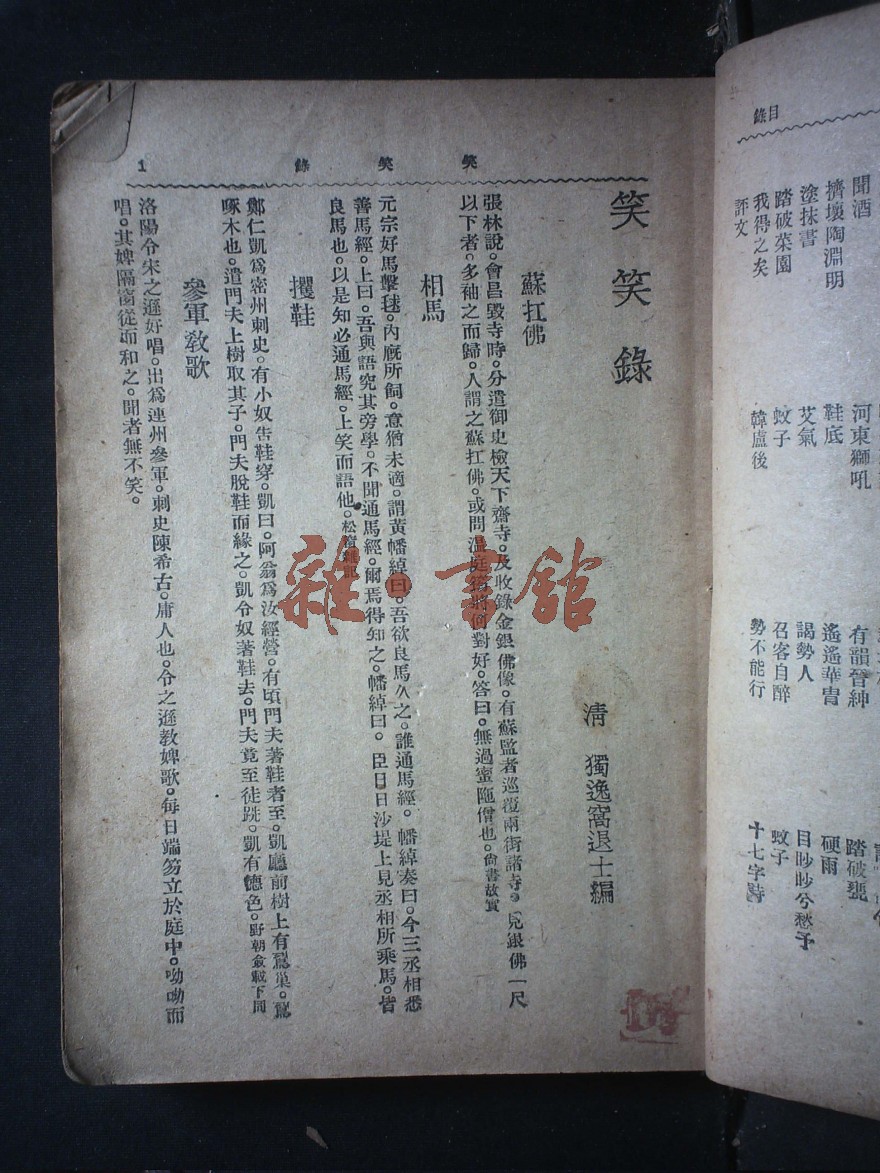 目錄
聞酒
擠壞陶淵明
河東獅吼
有韻晉紳
踏破甕
塗抹書
鞋底
遙遙華胄
硬雨
踏破菜園
艾氣
謁勢人
目眇眇兮愁予
我得之矣
蚊子
召客自醉
蚊子
評文
韓盧後
勢不能行
十七字詩
笑笑錄 1
笑笑錄
清 獨逸窩退士編
蘇扛佛
張林說。會昌毀寺時。分遣御史檢天下齋寺。及收錄金銀佛像。有蘇監者巡覆兩街諸寺。見銀佛一尺
以下者。多袖之而歸。人謂之蘇扛佛。或問溫庭筠將何對好。答曰。無過蜜陁僧也。尙書故實
相馬
元宗好馬擊毬。內廐所飼。意猶未適。謂黃幡綽曰。吾欲良馬久之。誰通馬經。幡綽奏曰。今三丞相悉
善馬經。上曰。吾與語究其旁學。不聞通馬經。爾焉得知之。幡綽曰。臣日日沙堤上見丞相所乘馬。皆
良馬也。以是知必通馬經。上笑而語他。松窗雜
攫鞋
鄭仁凱爲密州刺史。有小奴告鞋穿。凱曰。阿翁爲汝經營。有頃門夫著鞋者至。凱廳前樹上有鴷巢。鴷
啄木也。遣門夫上樹取其子。門夫脫鞋而緣之。凱令奴著鞋去。門夫竟至徒跣。凱有德色。野朝僉載下同
參軍教歌
洛陽令宋之遜好唱。出爲連州參軍。刺史陳希古。庸人也。令之遜教婢歌。每日端笏立於庭中。呦呦而
唱。其婢隔窗從而和之。聞者無不笑。
雜·書館